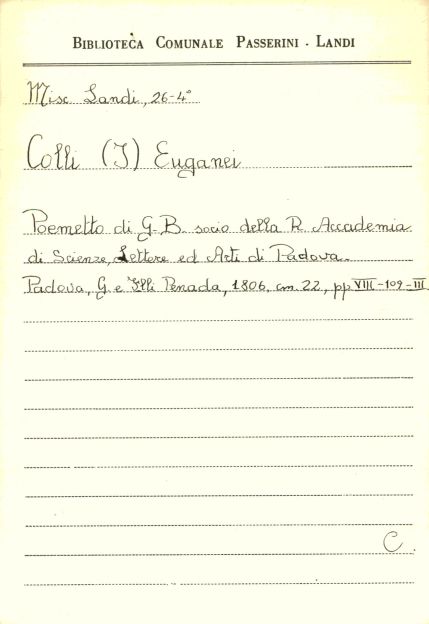 BIBLIOTECA COMUNALE PASSERINI - LANDI
Misc Landi, 26-4°
Colli (I) Euganei
Poemetto di G. B. socio della R. Accademia
di Scienze, Lettere ed Arti di Padova.
Padova, G. e Flli Penada, 1806, cm. 22, pp VIII-109-III
C.